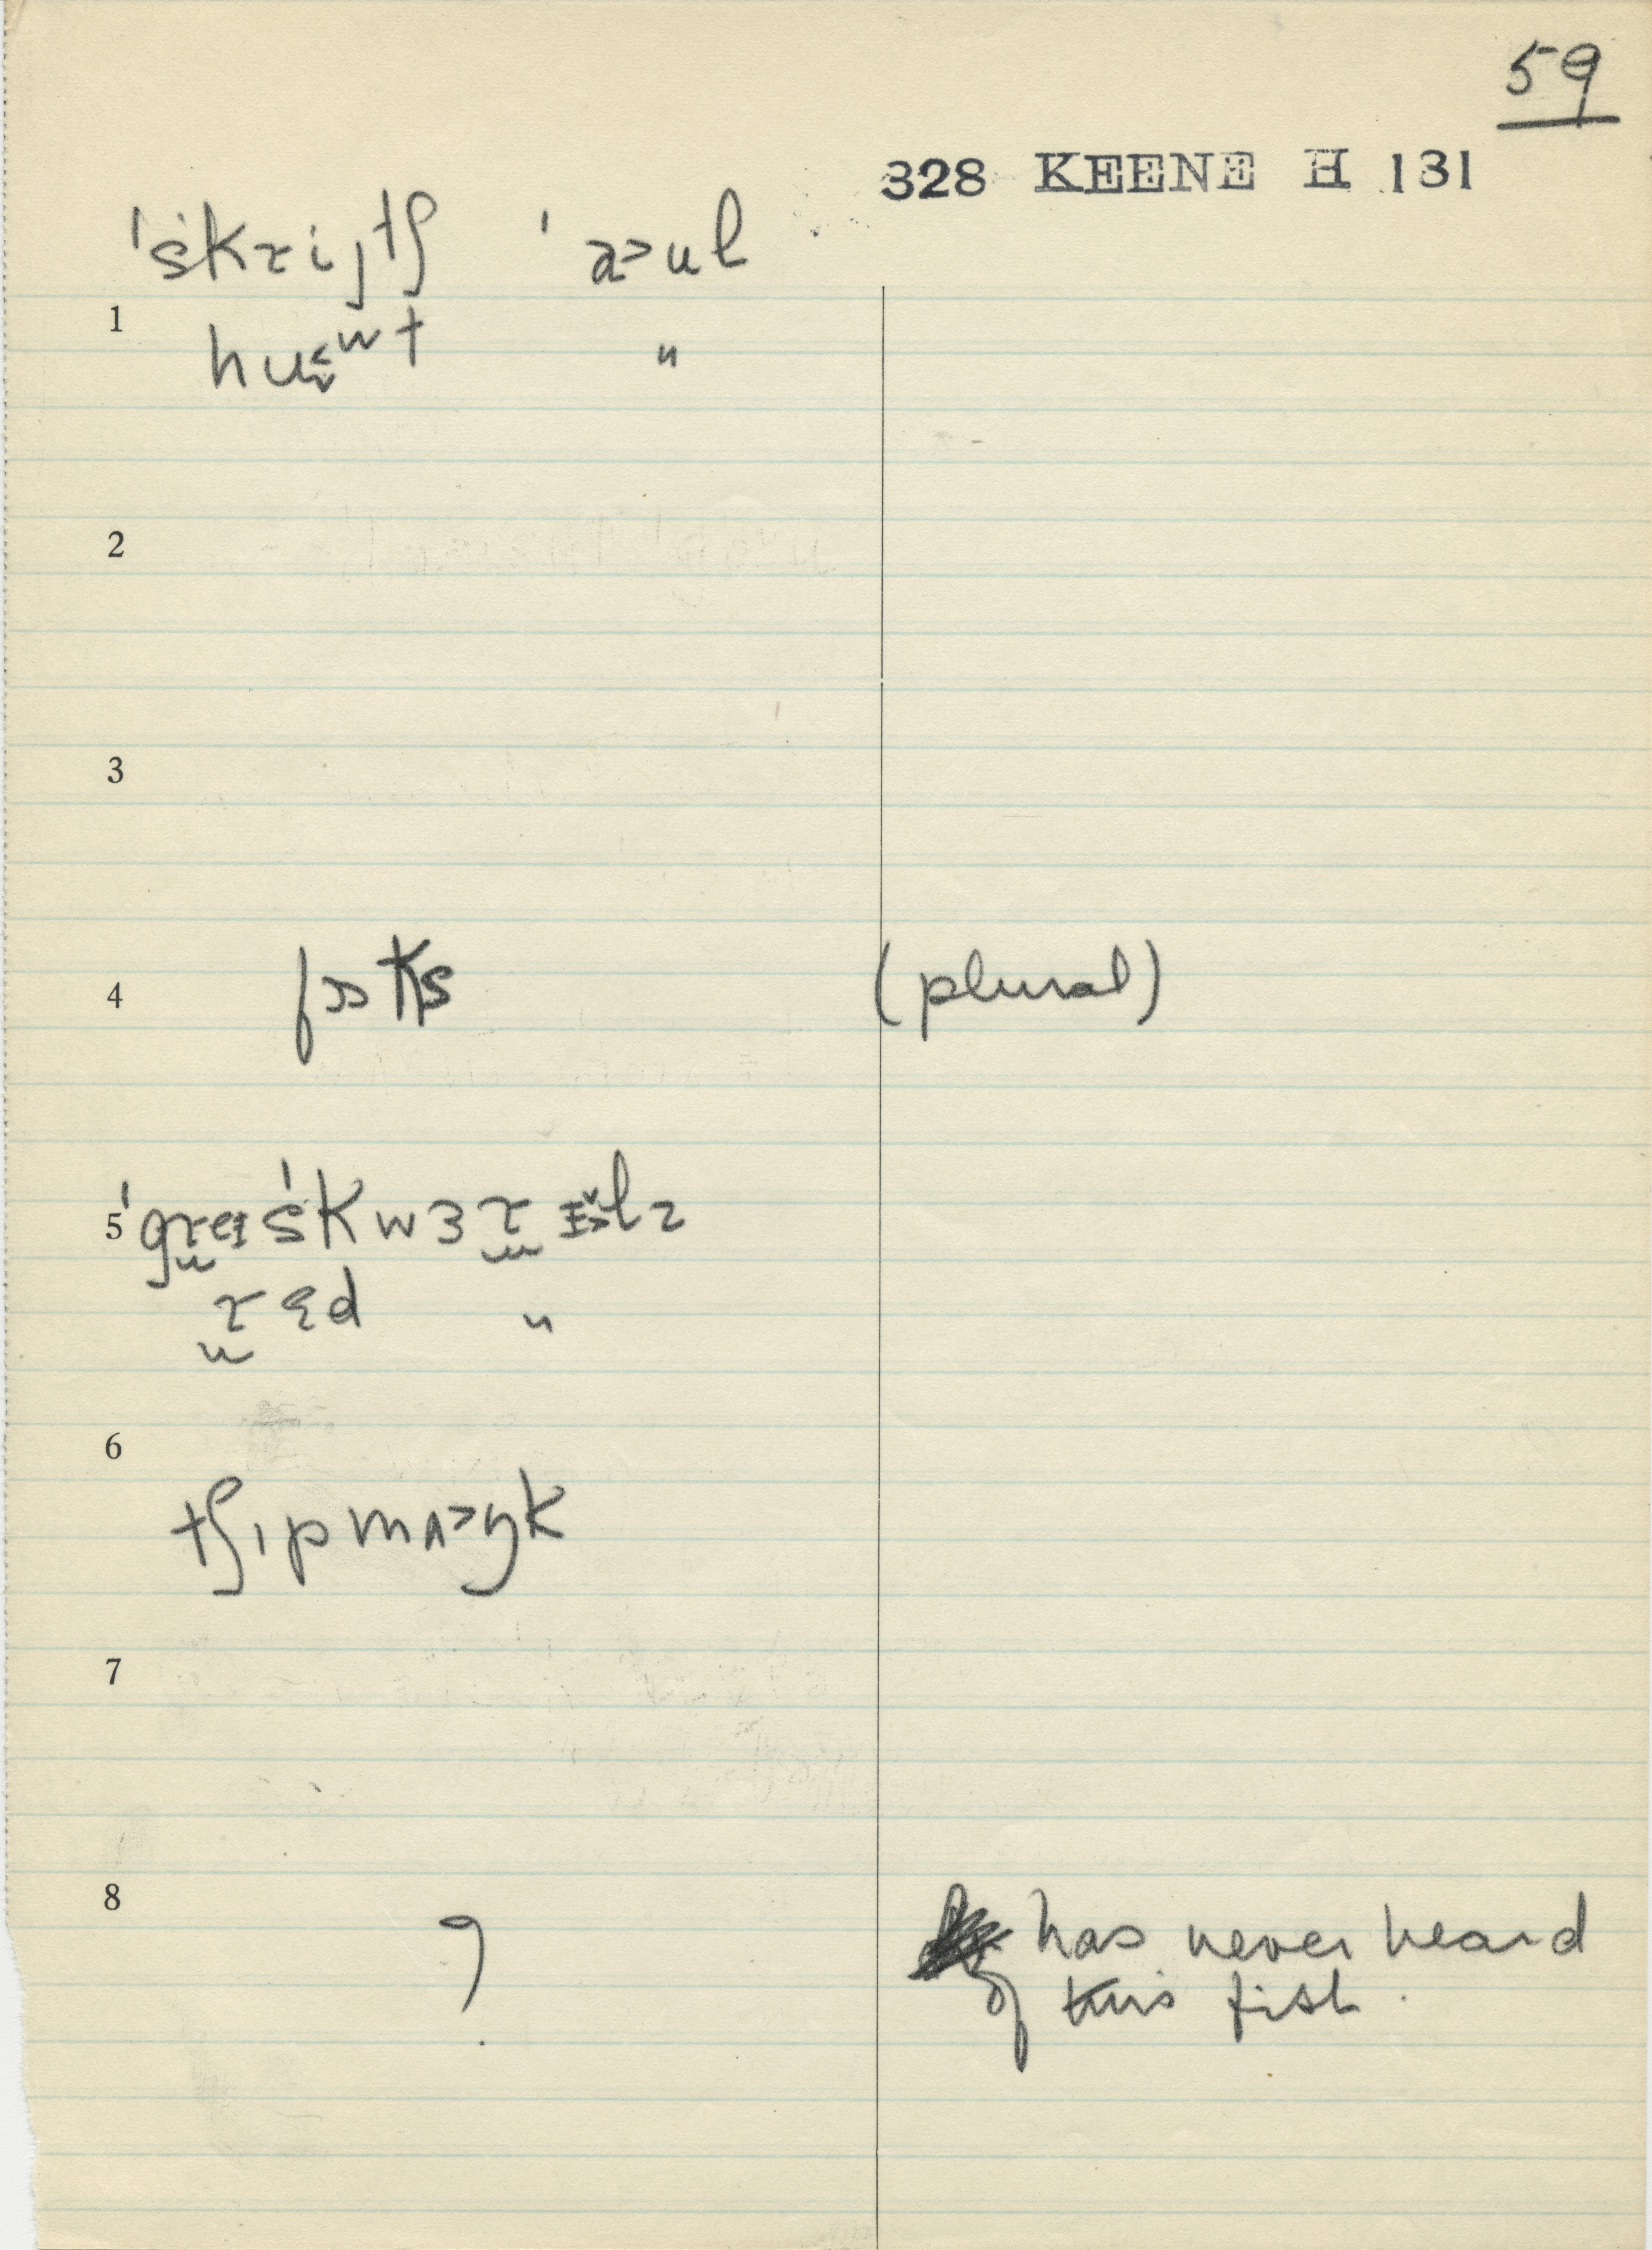 59
328 KEENE H 131
ˈskriɟtʃ ˈaᵓul
1
huᵋʷt "
2
3
4 fɔɔks (plural)
5 ˈgreɪˈskwɜrɪ̌lz
rɛd "
6
tʃɪpmʌᵓŋk
7
8
? has never heard
of this fish.